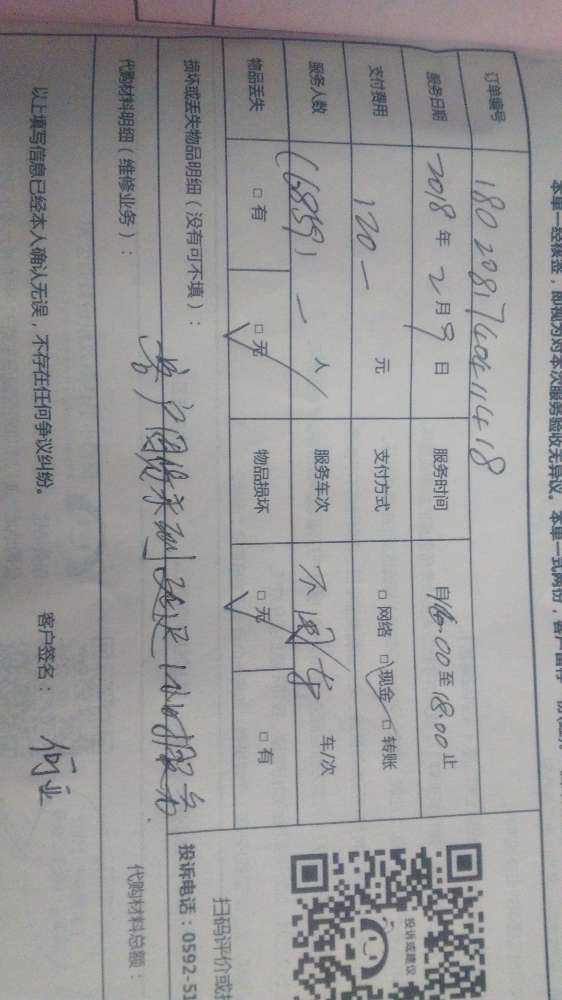 本单一经移签，即视为对本次服务验收无异议。本单一式两份，客户留存
订单编号 180208174041418
服务日期 2018年2月9日 服务时间 自16:00至18:00止
支付费用 120一元 支付方式 □网络 □现金 □转账
服务人数 (6859) 一人 服务车次 不用车 车/次
物品丢失 □有 □无 物品损坏 □无 □有
损坏或丢失物品明细（没有可不填）：
客户
代购材料明细（维修业务）：
代购材料总额：
以上填写信息已经本人确认无误，不存在任何争议纠纷。
客户签名：何业
投诉或建议
扫码评价或
投诉电话：0592-51